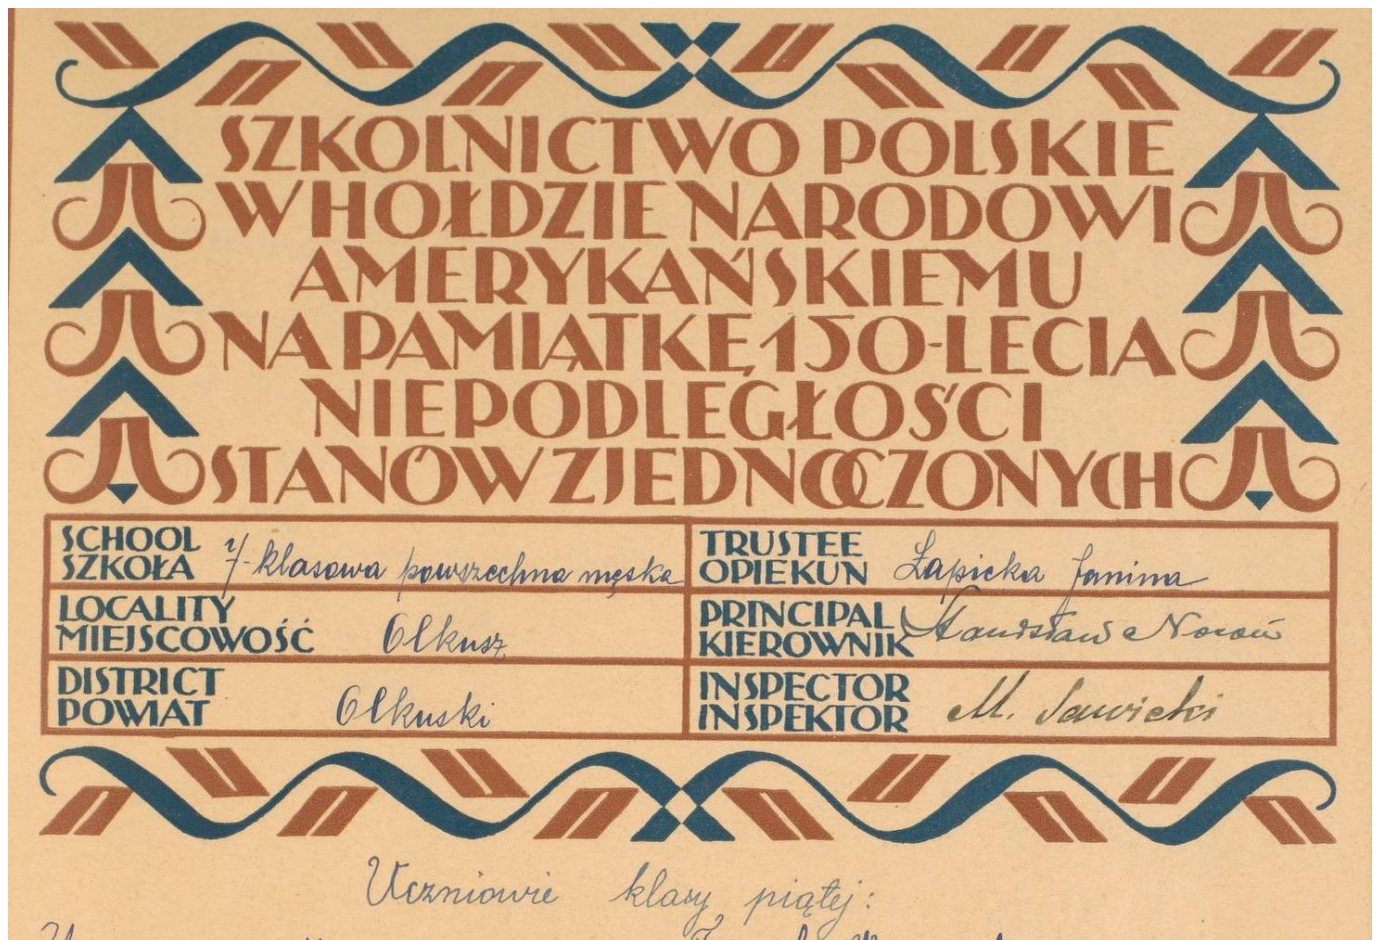 SZKOLNICTWO POLSKIE
W HOŁDZIE NARODOWI
AMERYKAŃSKIEMU
NA PAMIĄTKĘ 150-LECIA
NIEPODLEGŁOŚCI
STANÓW ZJEDNOCZONYCH
SCHOOL
SZKOŁA 7-klasowa powszechna męska
TRUSTEE
OPIEKUN Łapicka Janina
LOCALITY
MIEJSCOWOŚĆ Olkusz
PRINCIPAL
KIEROWNIK Stanisław
DISTRICT
POWIAT Olkuski
INSPECTOR
INSPEKTOR M. Sawicki
Uczniowie klasy piątej: